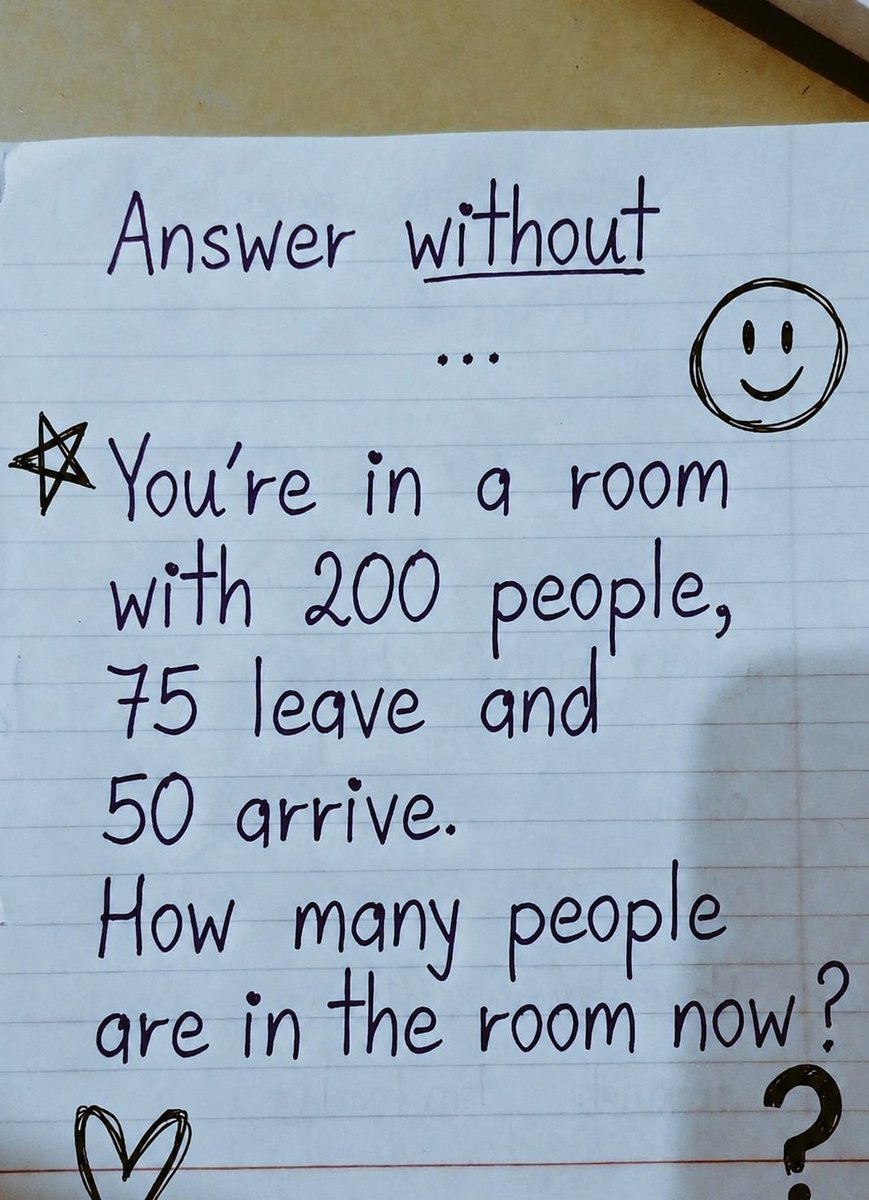 Answer without
...
You're in a room
with 200 people,
75 leave and
50 arrive.
How many people
are in the room now?
?